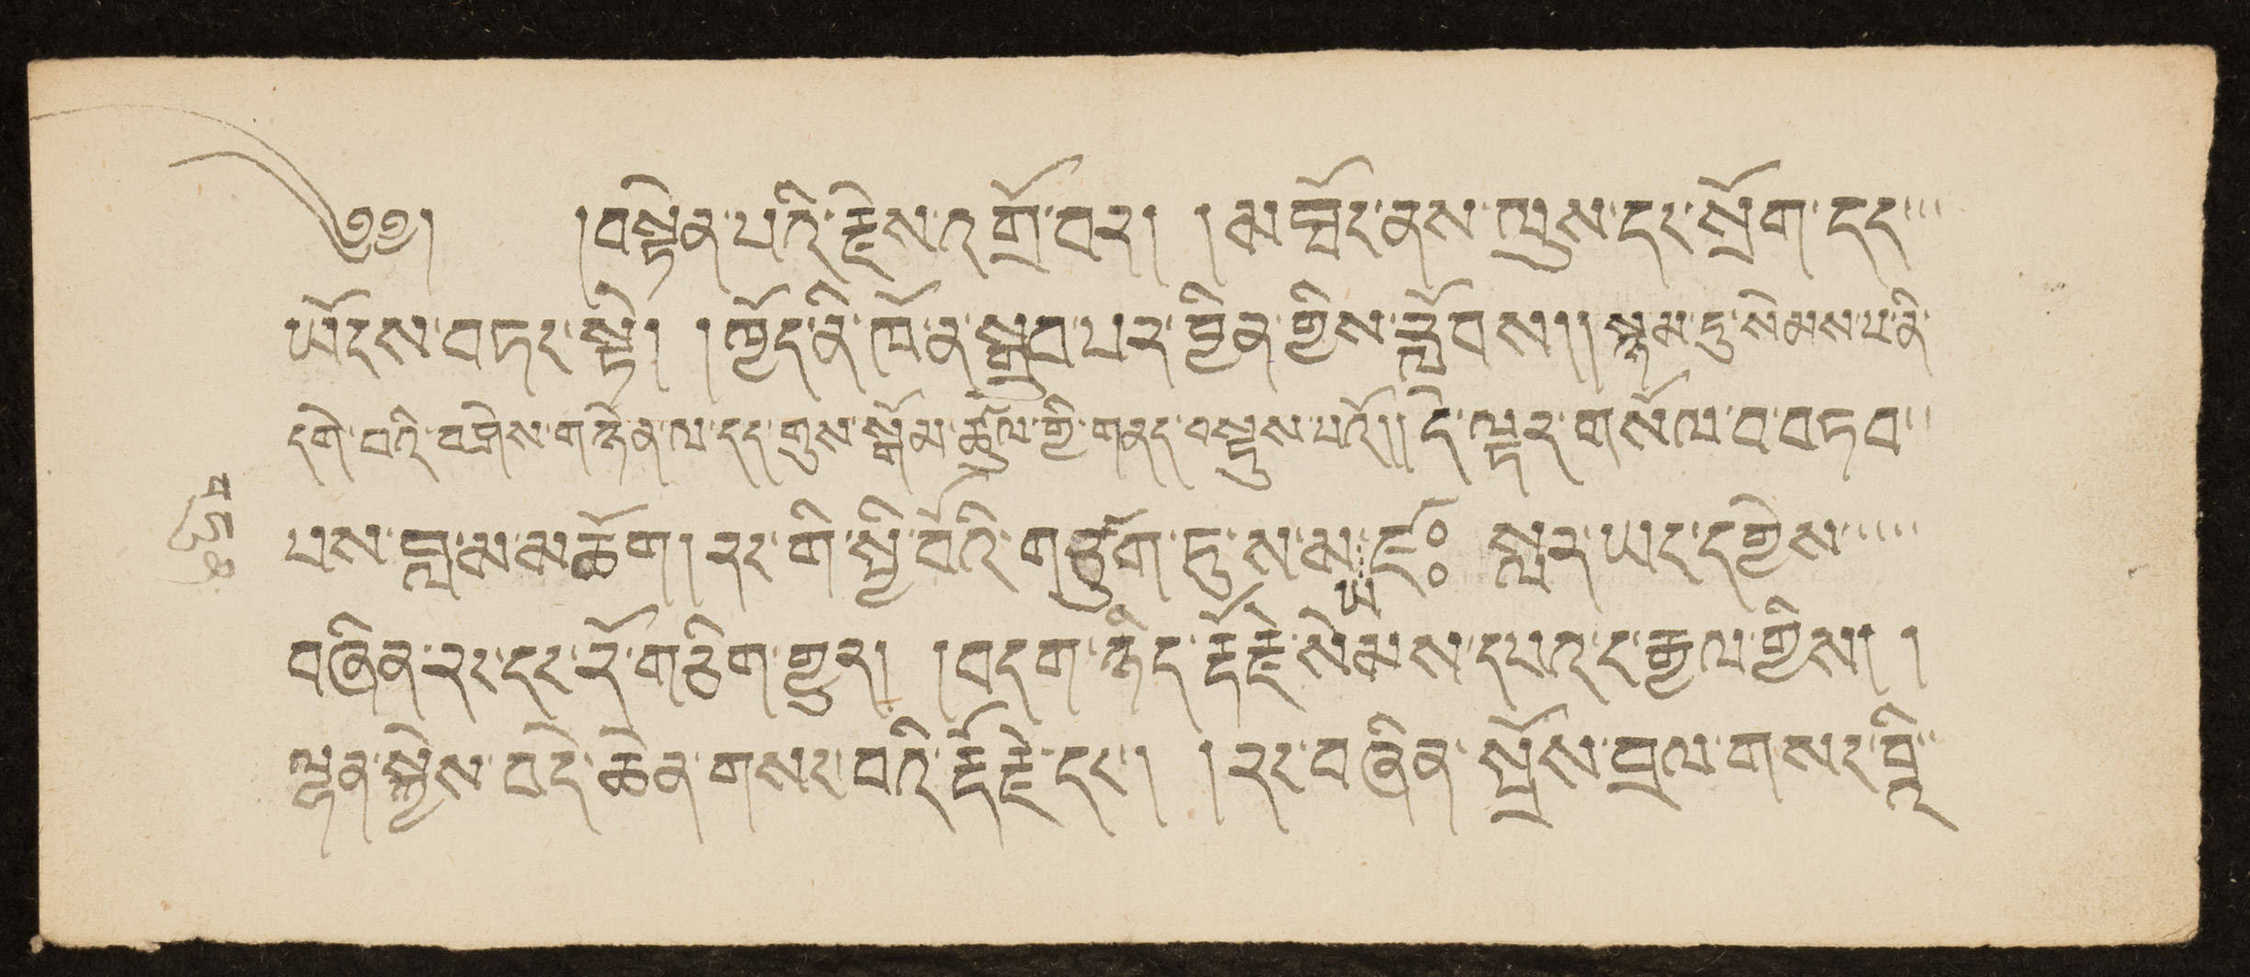 ༄༅། །བསྟེན་པའི་རྗེས་འགྲོ་བར། །མ་བློང་ནས་ལུས་དང་སྲོག་དང་
ཡོངས་བཏང་སྟེ། །ཁྱོད་ནི་ཁོ་ན་སྒྲུབ་པར་བྱིན་གྱིས་རློབས།།སྙམ་དུ་སེམས་པ་ནི་
དགེ་བའི་བཤེས་གཉེན་ལ་དད་གུས་སྒོམ་ཚུལ་གྱི་གནད་བསྡུས་པའོ།།དེ་ལྟར་གསོལ་བ་བཏབ་
པས་བླ་མ་མཆོག།རང་གི་སྤྱི་བོའི་གཙུག་ཏུ་ས་མ་ཡ་ཛཿ སླར་ཡང་དགྱེས་
བཞིན་རང་དང་རོ་གཅིག་གྱུར། །བདག་ཉིད་རྡོ་རྗེ་སེམས་དཔའ་ང་རྒྱལ་གྱིས། །
ལྷན་སྐྱེས་བདེ་ཆེན་གསང་བའི་རྡོ་རྗེ་དང་། །རང་བཞིན་སྤྲོས་བྲལ་གསང་བྷི